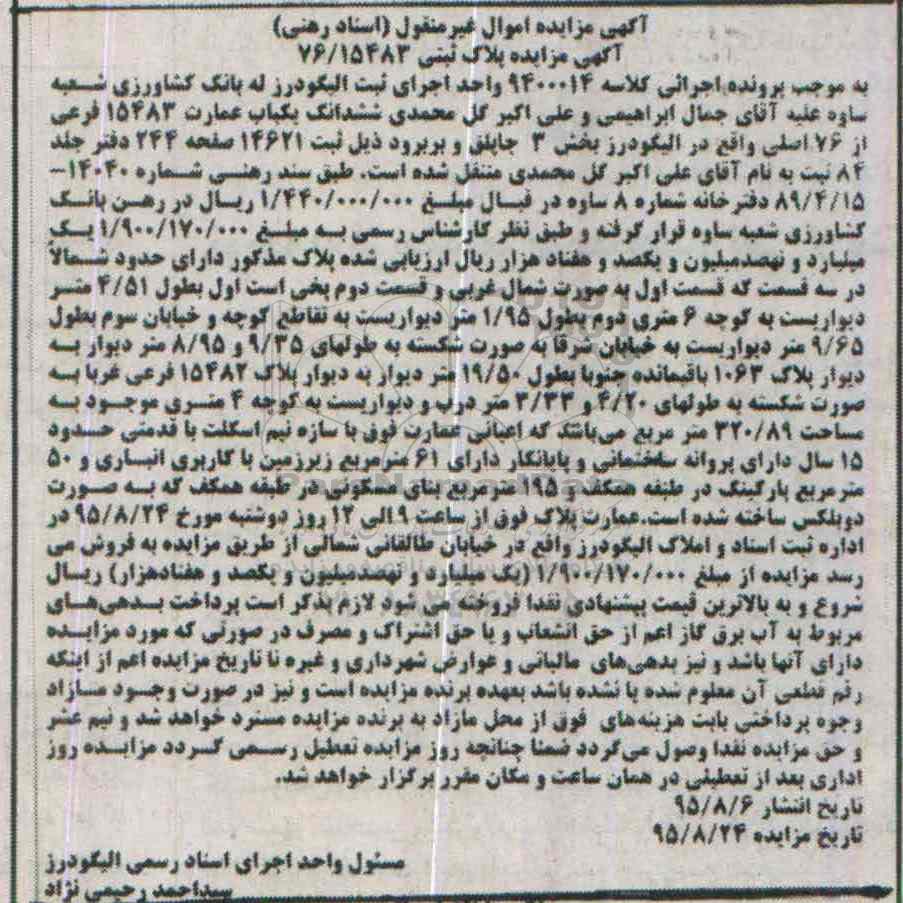 آگهی مزایده اموال غیرمنقول (اسناد رهنی)
آگهی مزایده پلاک ثبتی ۷۶/۱۵۴۸۳
به موجب پرونده اجرائی کلاسه ۹۴۰۰۰۱۴ واحد اجرای ثبت الیگودرز له بانک کشاورزی شعبه
ساوه علیه آقای جمال ابراهیمی و علی اکبر گل محمدی ششدانگ یکباب عمارت ۱۵۴۸۳ فرعی
از ۷۶ اصلی واقع در الیگودرز بخش ۳ جاپلق و بربرود ذیل ثبت ۱۴۶۲۱ صفحه ۲۴۴ دفتر جلد
۸۴ ثبت به نام آقای علی اکبر گل محمدی منتقل شده است. طبق سند رهنی شماره ۱۴۰۴۰-
۸۹/۴/۱۵ دفترخانه شماره ۸ ساوه در قبال مبلغ ۱/۴۴۰/۰۰۰/۰۰۰ ریال در رهن بانک
کشاورزی شعبه ساوه قرار گرفته و طبق نظر کارشناس رسمی به مبلغ ۱/۹۰۰/۱۷۰/۰۰۰ یک
میلیارد و نهصدمیلیون و یکصد و هفتاد هزار ریال ارزیابی شده پلاک مذکور دارای حدود شمالاً
در سه قسمت که قسمت اول به صورت شمال غربی و قسمت دوم پخی است اول بطول ۴/۵۱ متر
دیواریست به کوچه ۶ متری دوم بطول ۱/۹۵ متر دیواریست به تقاطع کوچه و خیابان سوم بطول
۹/۶۵ متر دیواریست به خیابان شرقا به صورت شکسته به طولهای ۹/۳۵ و ۸/۹۵ متر دیوار به
دیوار پلاک ۱۰۶۳ باقیمانده جنوبا بطول ۱۹/۵۰ متر دیوار به دیوار پلاک ۱۵۴۸۲ فرعی غربا به
صورت شکسته به طولهای ۴/۲۰ و ۳/۳۳ متر درب و دیواریست به کوچه ۴ متری موجود به
مساحت ۳۲۰/۸۹ متر مربع می‌باشد که اعیانی عمارت فوق با سازه نیم اسکلت با قدمتی حدود
۱۵ سال دارای پروانه ساختمانی و پایانکار دارای ۶۱ مترمربع زیرزمین با کاربری انباری و ۵۰
مترمربع پارکینگ در طبقه همکف و ۱۹۵ مترمربع بنای مسکونی در طبقه همکف که به صورت
دوبلکس ساخته شده است.عمارت پلاک فوق از ساعت ۹ الی ۱۲ روز دوشنبه مورخ ۹۵/۸/۲۴ در
اداره ثبت اسناد و املاک الیگودرز واقع در خیابان طالقانی شمالی از طریق مزایده به فروش می
رسد مزایده از مبلغ ۱/۹۰۰/۱۷۰/۰۰۰ (یک میلیارد و نهصدمیلیون و یکصد و هفتادهزار) ریال
شروع و به بالاترین قیمت پیشنهادی نقدا فروخته می شود لازم بذکر است پرداخت بدهی‌های
مربوط به آب برق گاز اعم از حق انشعاب و یا حق اشتراک و مصرف در صورتی که مورد مزایده
دارای آنها باشد و نیز بدهی‌های مالیاتی و عوارض شهرداری و غیره تا تاریخ مزایده اعم از اینکه
رقم قطعی آن معلوم شده یا نشده باشد بعهده برنده مزایده است و نیز در صورت وجود مازاد
وجوه پرداختی بابت هزینه‌های فوق از محل مازاد به برنده مزایده مسترد خواهد شد و نیم عشر
و حق مزایده نقدا وصول می‌گردد ضمنا چنانچه روز مزایده تعطیل رسمی گردد مزایده روز
اداری بعد از تعطیلی در همان ساعت و مکان مقرر برگزار خواهد شد.
تاریخ انتشار ۹۵/۸/۶
تاریخ مزایده ۹۵/۸/۲۴
مسئول واحد اجرای اسناد رسمی الیگودرز
سیداحمد رحیمی نژاد